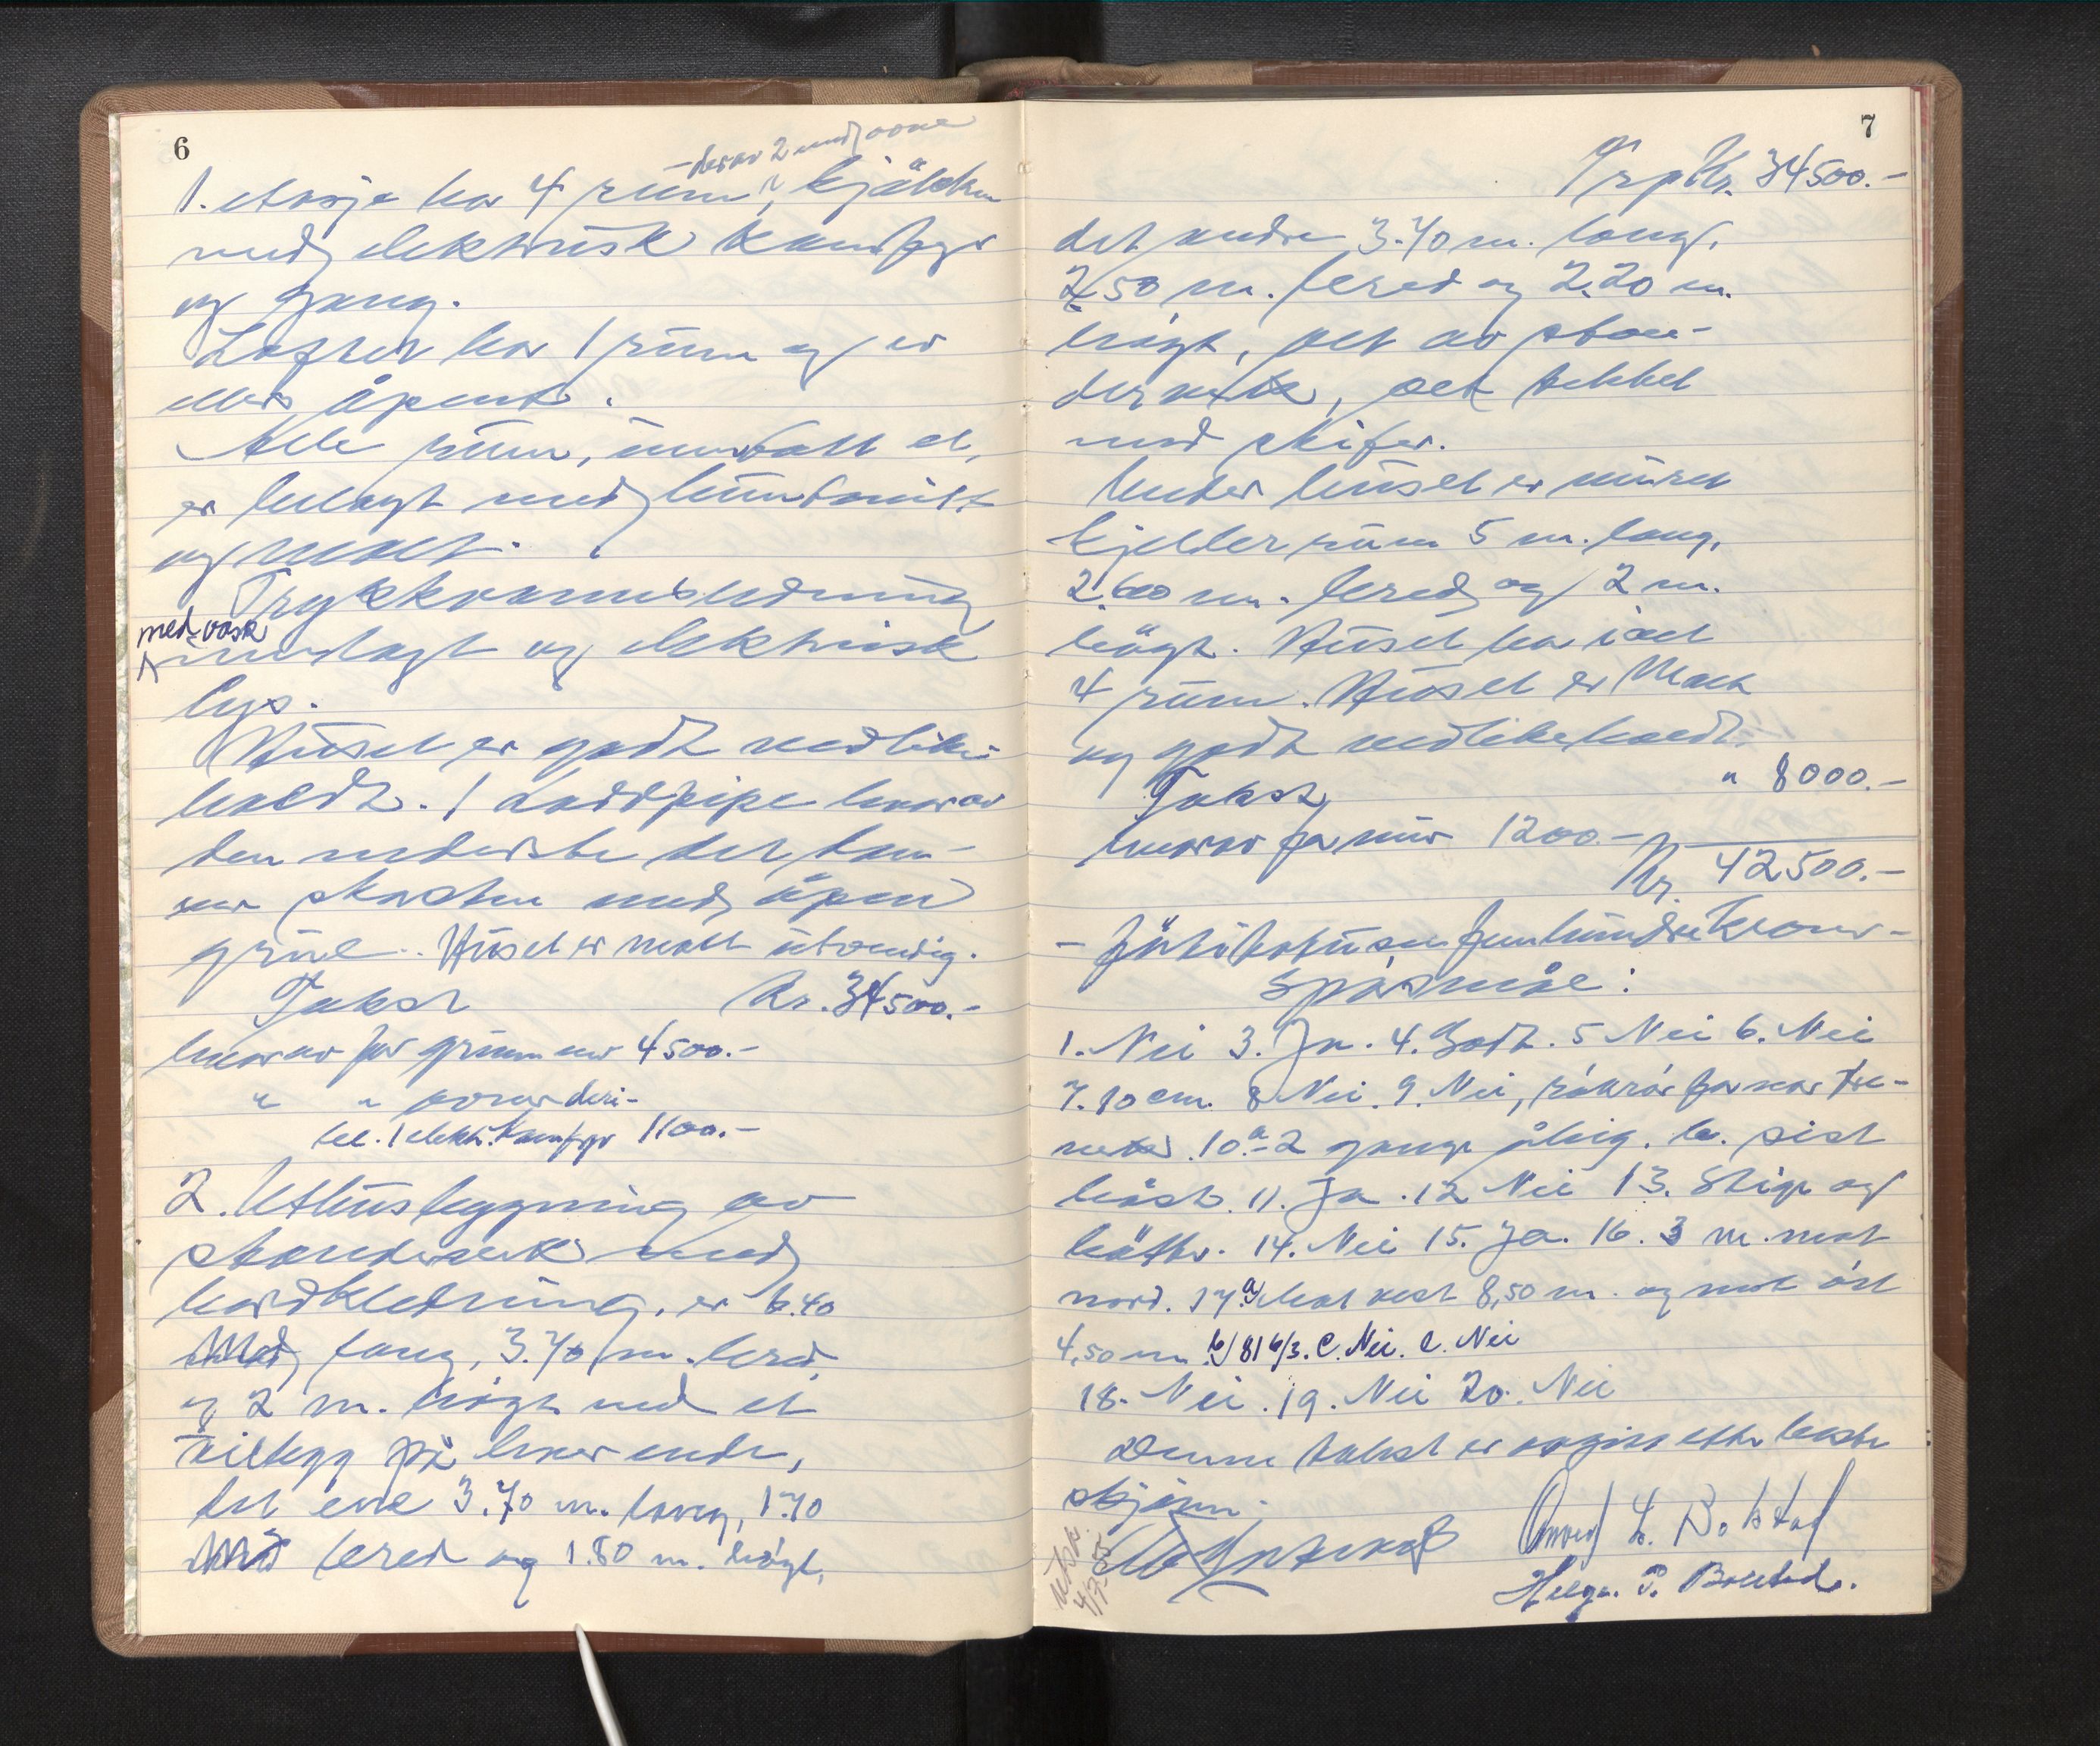 6
- derav 2 med ovne
1. etasje har 4 rum, kjøkken
med elektrisk kamfyr
og gang.
Loftet har 1 rum og er
ellers åpent.
Alle rum, unntatt et,
er belagt med huntonitt
og malt.
Trykkvannsledning
med vask
innlagt og elektrisk
lys.
Huset er godt vedlike-
holdt. 1 Loddpipe hvorav
den nederste del dan-
ner skorsten med åpen
grue. Huset er malt utvendig.
Takst Kr. 34500.-
hvorav for grunnmur 4500.-
" " ovner deri-
bel. 1 elektr. kamfyr 1100.-
2. Uthusbygning av
standerverk med
bordkledning, er 6.40
lang, 3.70 m. bred
og 2 m. høgt med et
tilbygg på hver ende,
det ene 3.70 m. lang, 1.70
bred og 1.80 m. høgt,
7
Trsp Kr. 34500.-
det andre 3.70 m. lang,
2,50 m. bred og 2.20 m.
høgt, alt av stan-
derverk, alt tekket
med skifer.
Under huset er muret
kjellerrum 5 m. lang,
2.60 m. bred og 2 m.
høgt. Huset har i alt
4 rum. Huset er Malt
og godt vedlikeholdt.
Takst " 8000.-
hvorav for mur 1200.-
Kr. 42500.-
- førtitotusenfemhundrekroner-
Spørsmål:
1. Nei 3. Ja. 4. Godt. 5 Nei 6. Nei
7. 10 cm. 8 Nei. 9. Nei, rökrör for nær tre-
verk. 10.a- 2 gange årlig. b. sist
høst. 11. Ja. 12 Nei 13. Stige og
bøtter. 14. Nei 15. Ja. 16. 3 m. mot
nord. 17.a) Mot vest 8,50 m. og mot öst
4,50 m. b/ 81 6/3. c. Nei. c. Nei
18. Nei. 19. Nei 20. Nei
Denne takst er avgitt etter beste
skjønn.
Utsk.
4/7-55
L. Bolstad
Helge. P. Bolstad.